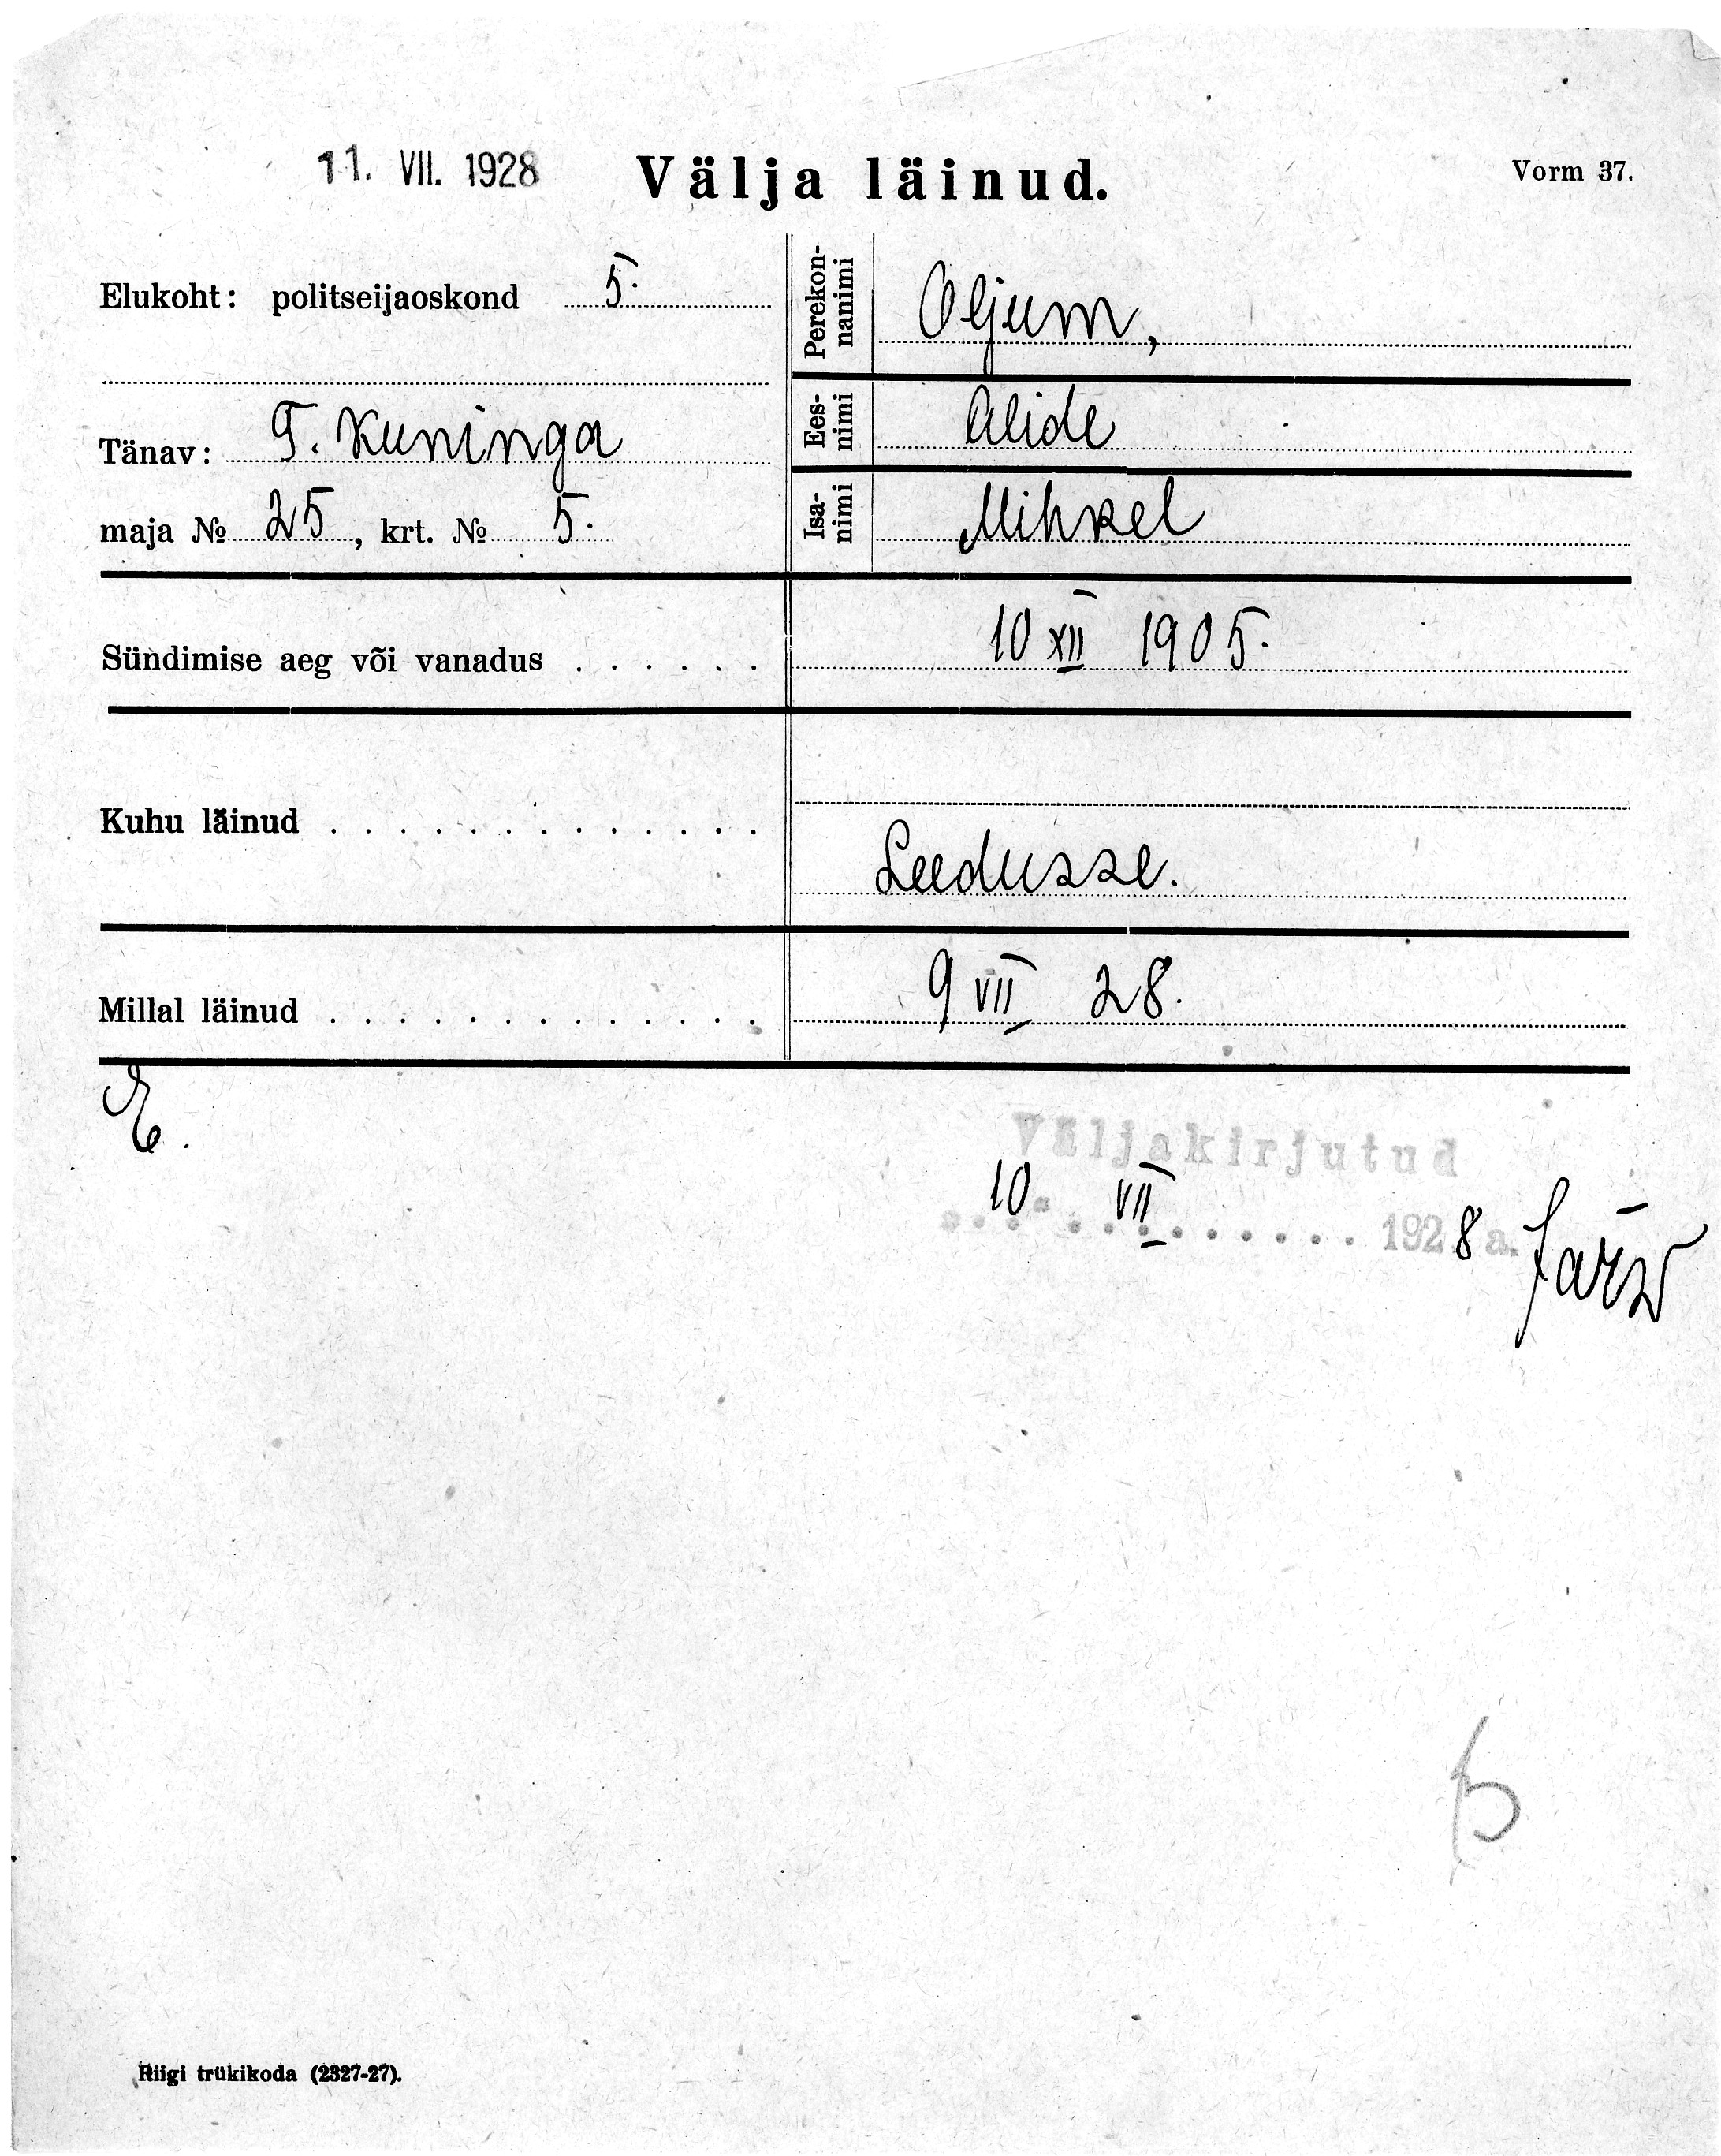 11. VII. 1928
Välja läinud.
Vorm 37.
Elukoht: politseijaoskond 5.
Tänav: T. Kuninga
maja № 25, krt. № 5.
Perekon-
nanimi
Oljum,
Ees-
nimi
Alide
Isa-
nimi
Mihkel
Sündimise aeg või vanadus . . . . . . 10 XII 1905.
Kuhu läinud . . . . . . . . . . . . .
Leedusse.
Millal läinud . . . . . . . . . . . . . 9 VII 28.
E.
Väljakirjutud
10 VII 1928 a.
Riigi trükikoda (2327-27).